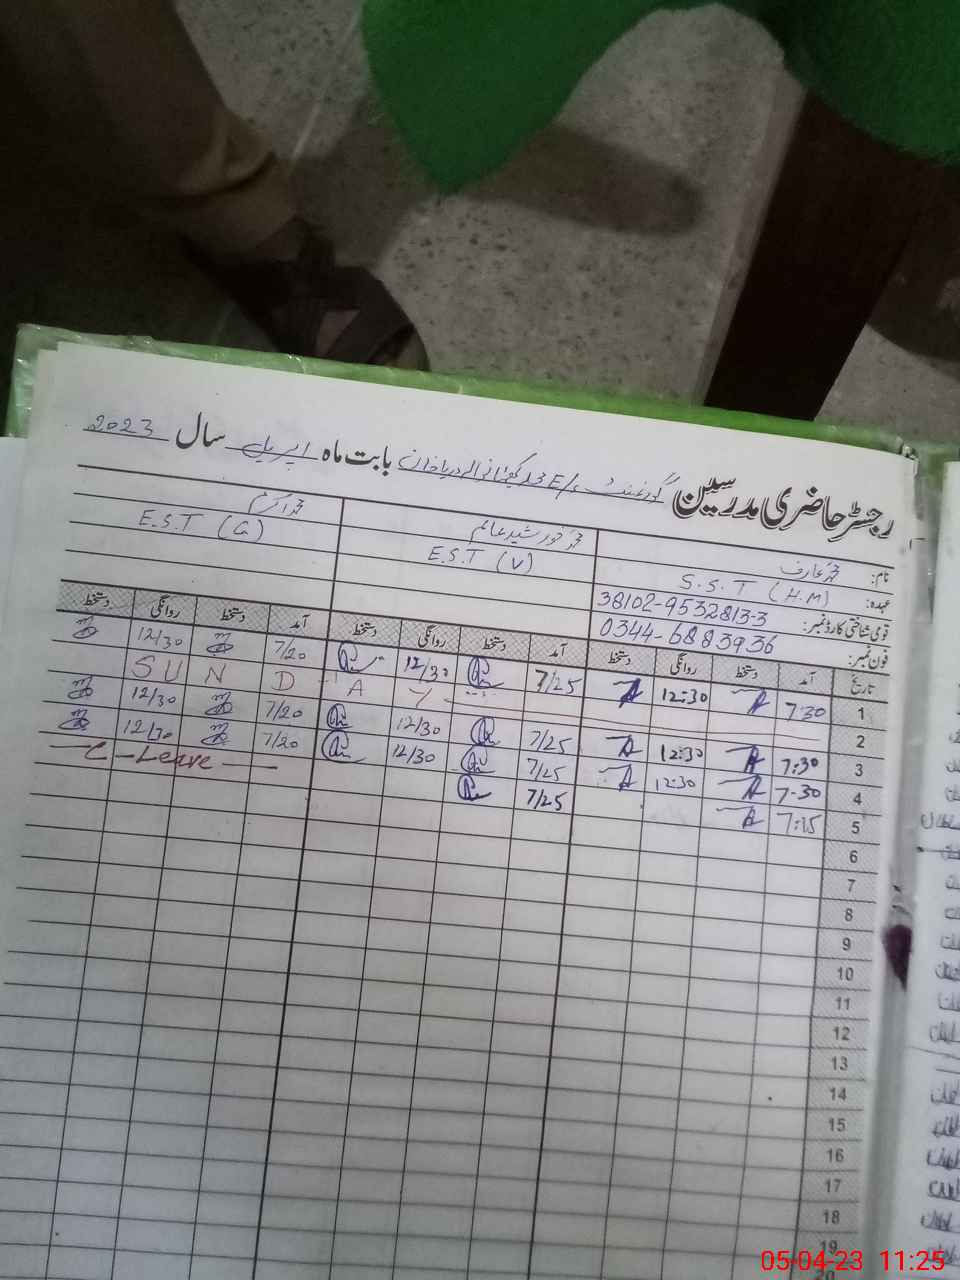 رجسٹر حاضری مدرسین گورنمنٹ بابت ماہ اپریل سال 2023
نام: محمد عارف محمد خورشید عالم محمد اکرم
عہدہ: S.S.T (H.M) E.S.T (V) E.S.T (G)
قومی شناختی کارڈ نمبر: 38102-9532813-3
فون نمبر: 0344-6883936
تاریخ آمد دستخط روانگی دستخط آمد دستخط روانگی دستخط آمد دستخط روانگی دستخط
1 7:30 12:30 7/25 12/30 7/20 12/30
2 SUNDAY
3 7:30 12:30 7/25 12/30 7/20 12/30
4 7:30 12:30 7/25 12/30 7/20 12/30
5 7:15 7/25 C-Leave
6
7
8
9
10
11
12
13
14
15
16
17
18
19
20
05-04-23 11:25